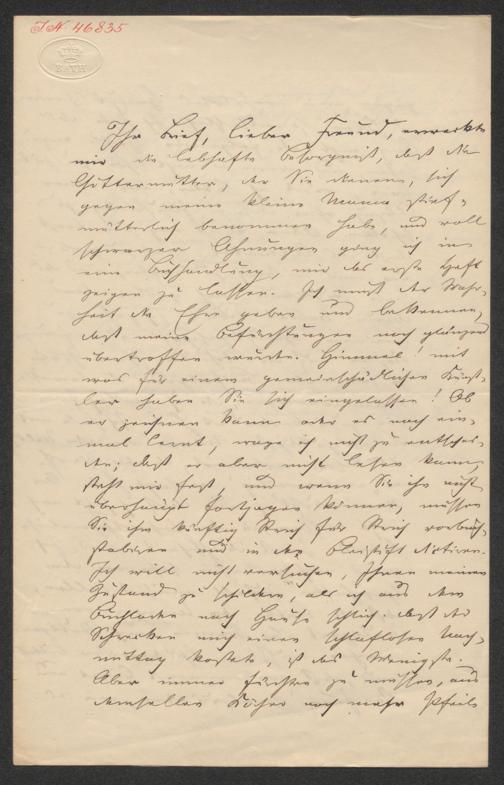 J.N. 46835
Ihr Brief, lieber Freund, erweckte
mir die lebhafte Besorgniß, daß die
Göttermutter, der Sie dienen, sich
gegen meine kleine Mama stief-
mütterlich benommen habe, und voll
schwarzer Ahnungen ging ich in
eine Buchhandlung, mir das erste Heft
zeigen zu lassen. Ich muß der Wahr-
heit die Ehre geben und bekennen,
daß meine Befürchtungen noch glänzend
übertroffen wurden. Himmel! mit
was für einem gemeinschädlichen Künst-
ler haben Sie sich eingelassen! Ob
er zeichnen kann oder es noch ein-
mal lernt, wage ich nicht zu entschei-
den; daß er aber nicht lesen kann,
steht mir fest, und wenn Sie ihn nicht
überhaupt fortjagen können, müssen
Sie ihm künftig Strich für Strich vorbuch-
stabiren und in den Bleistift dictiren.
Ich will nicht versuchen, Ihnen meinen
Zustand zu schildern, als ich aus dem
Buchladen nach Hause schlich. Daß der
Schrecken mich einen schlaflosen Nach-
mittag kostete, ist das Wenigste.
Aber immer fürchten zu müssen, aus
demselben Köcher noch mehr Pfeile